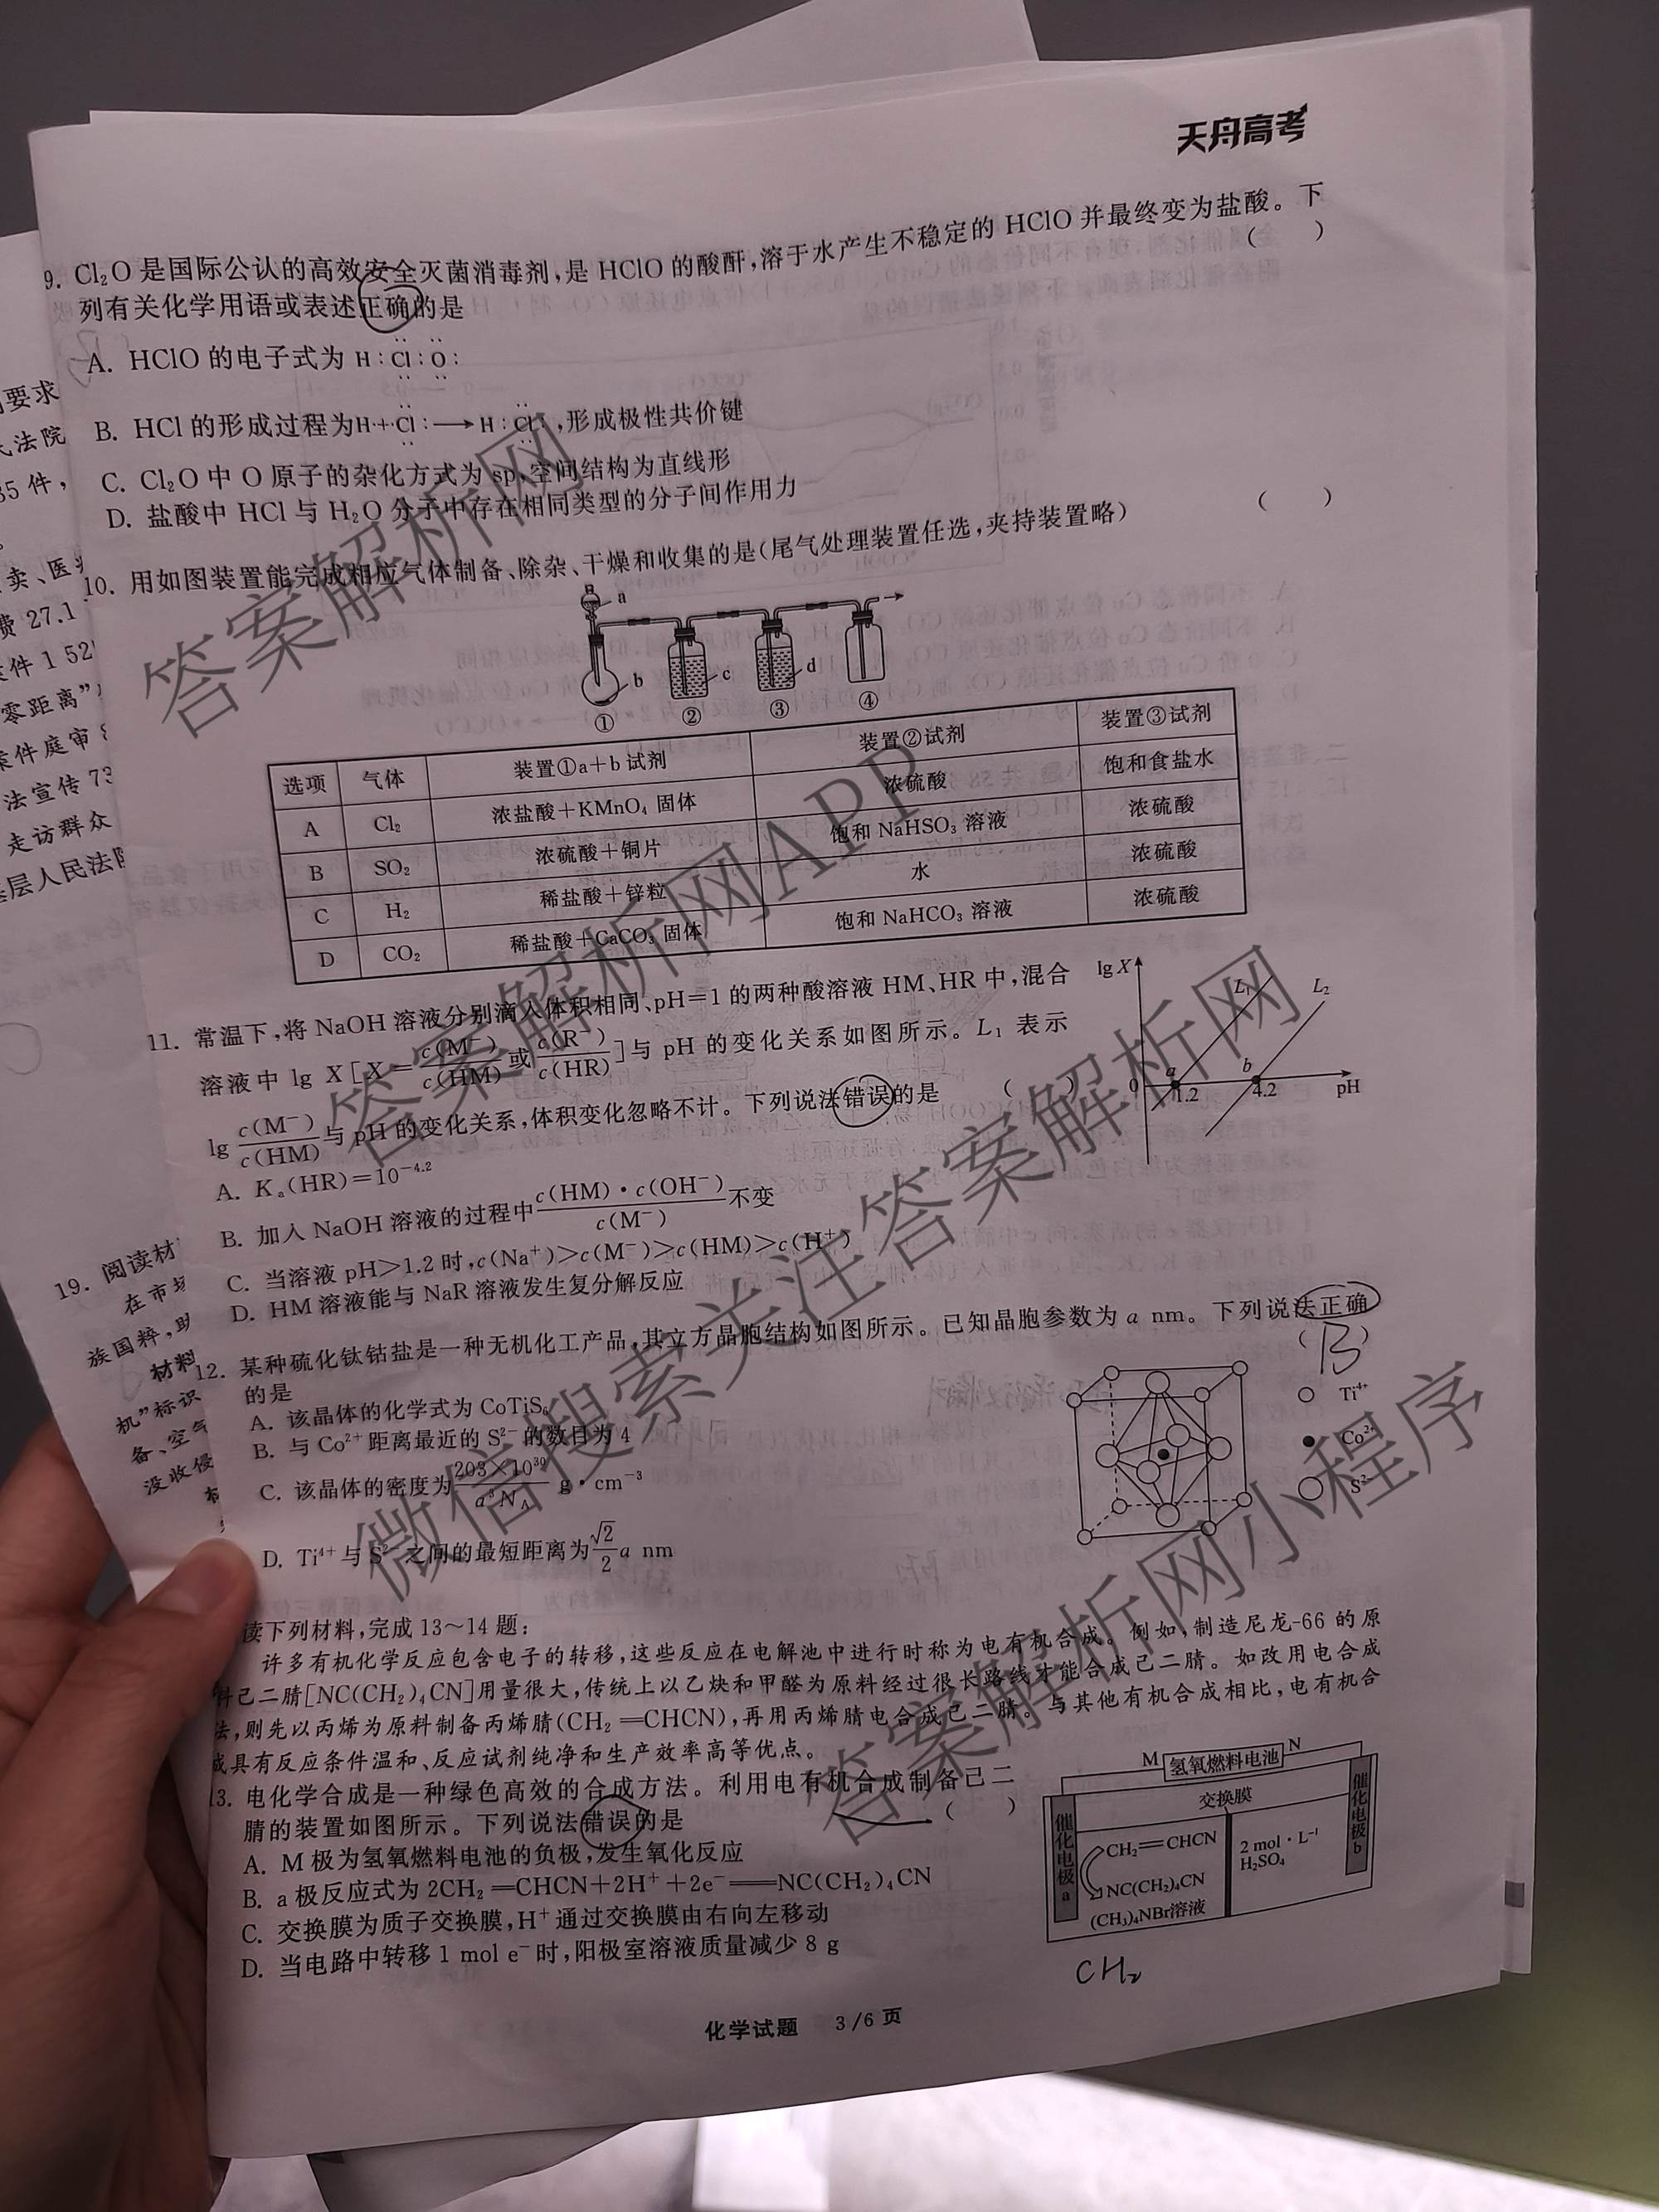 天舟高考
9. Cl₂O 是国际公认的高效安全灭菌消毒剂,是 HClO 的酸酐,溶于水产生不稳定的 HClO 并最终变为盐酸。下
列有关化学用语或表述正确的是 ( )
A. HClO 的电子式为 H:Cl:O:
B. HCl 的形成过程为H·+·Cl:⟶H:Cl:,形成极性共价键
C. Cl₂O 中 O 原子的杂化方式为 sp,空间结构为直线形
D. 盐酸中 HCl 与 H₂O 分子中存在相同类型的分子间作用力
10. 用如图装置能完成相应气体制备、除杂、干燥和收集的是(尾气处理装置任选,夹持装置略) ( )
a
b c d
① ② ③ ④
选项 气体 装置①a+b 试剂 装置②试剂 装置③试剂
A Cl₂ 浓盐酸+KMnO₄ 固体 浓硫酸 饱和食盐水
B SO₂ 浓硫酸+铜片 饱和 NaHSO₃ 溶液 浓硫酸
C H₂ 稀盐酸+锌粒 水 浓硫酸
D CO₂ 稀盐酸+CaCO₃ 固体 饱和 NaHCO₃ 溶液 浓硫酸
11. 常温下,将 NaOH 溶液分别滴入体积相同、pH=1 的两种酸溶液 HM、HR 中,混合
溶液中 lg X[X=c(M⁻)/c(HM)或c(R⁻)/c(HR)]与 pH 的变化关系如图所示。L₁ 表示
lg c(M⁻)/c(HM)与 pH 的变化关系,体积变化忽略不计。下列说法错误的是 ( )
lg X L₁ L₂
0 a 1.2 b 4.2 pH
A. Kₐ(HR)=10⁻⁴·²
B. 加入 NaOH 溶液的过程中c(HM)·c(OH⁻)/c(M⁻)不变
C. 当溶液 pH>1.2 时,c(Na⁺)>c(M⁻)>c(HM)>c(H⁺)
D. HM 溶液能与 NaR 溶液发生复分解反应
12. 某种硫化钛钴盐是一种无机化工产品,其立方晶胞结构如图所示。已知晶胞参数为 a nm。下列说法正确
的是 (B)
A. 该晶体的化学式为 CoTiS₆
B. 与 Co²⁺ 距离最近的 S²⁻ 的数目为 4
C. 该晶体的密度为203×10³⁰/a³N_A g·cm⁻³
D. Ti⁴⁺ 与 S²⁻ 之间的最短距离为√2/2 a nm
Ti⁴⁺
Co²⁺
S²⁻
读下列材料,完成 13~14 题:
许多有机化学反应包含电子的转移,这些反应在电解池中进行时称为电有机合成。例如,制造尼龙-66 的原
料己二腈[NC(CH₂)₄CN]用量很大,传统上以乙炔和甲醛为原料经过很长路线才能合成己二腈。如改用电合成
法,则先以丙烯为原料制备丙烯腈(CH₂═CHCN),再用丙烯腈电合成己二腈。与其他有机合成相比,电有机合
成具有反应条件温和、反应试剂纯净和生产效率高等优点。
13. 电化学合成是一种绿色高效的合成方法。利用电有机合成制备己二
腈的装置如图所示。下列说法错误的是 ( )
A. M 极为氢氧燃料电池的负极,发生氧化反应
B. a 极反应式为 2CH₂═CHCN+2H⁺+2e⁻══NC(CH₂)₄CN
C. 交换膜为质子交换膜,H⁺ 通过交换膜由右向左移动
D. 当电路中转移 1 mol e⁻ 时,阳极室溶液质量减少 8 g
M 氢氧燃料电池 N
交换膜
催化电极a
CH₂═CHCN
NC(CH₂)₄CN
(CH₃)₄NBr溶液
2 mol·L⁻¹
H₂SO₄
催化电极b
CH₂
化学试题 3/6 页
要求
民法院
35 件,
卖、医
费 27.1
件 1 52
零距离”
案件庭审
法宣传 73
走访群众
基层人民法院
19. 阅读材
在市场
族国粹,助
材料
机”标识
备、空气
没收侵
答案解析网
答案解析网APP
微信搜索关注答案解析网
答案解析网小程序